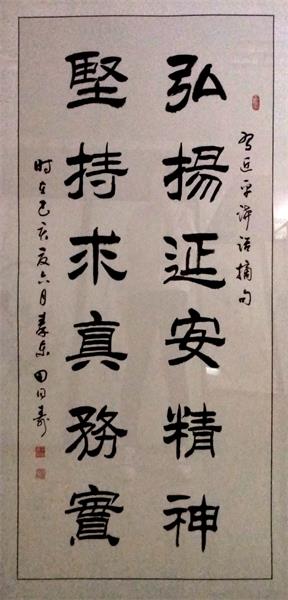 习近平讲话摘句
弘揚延安精神
堅持求真務實
时在己亥夏六月秦东田同寿